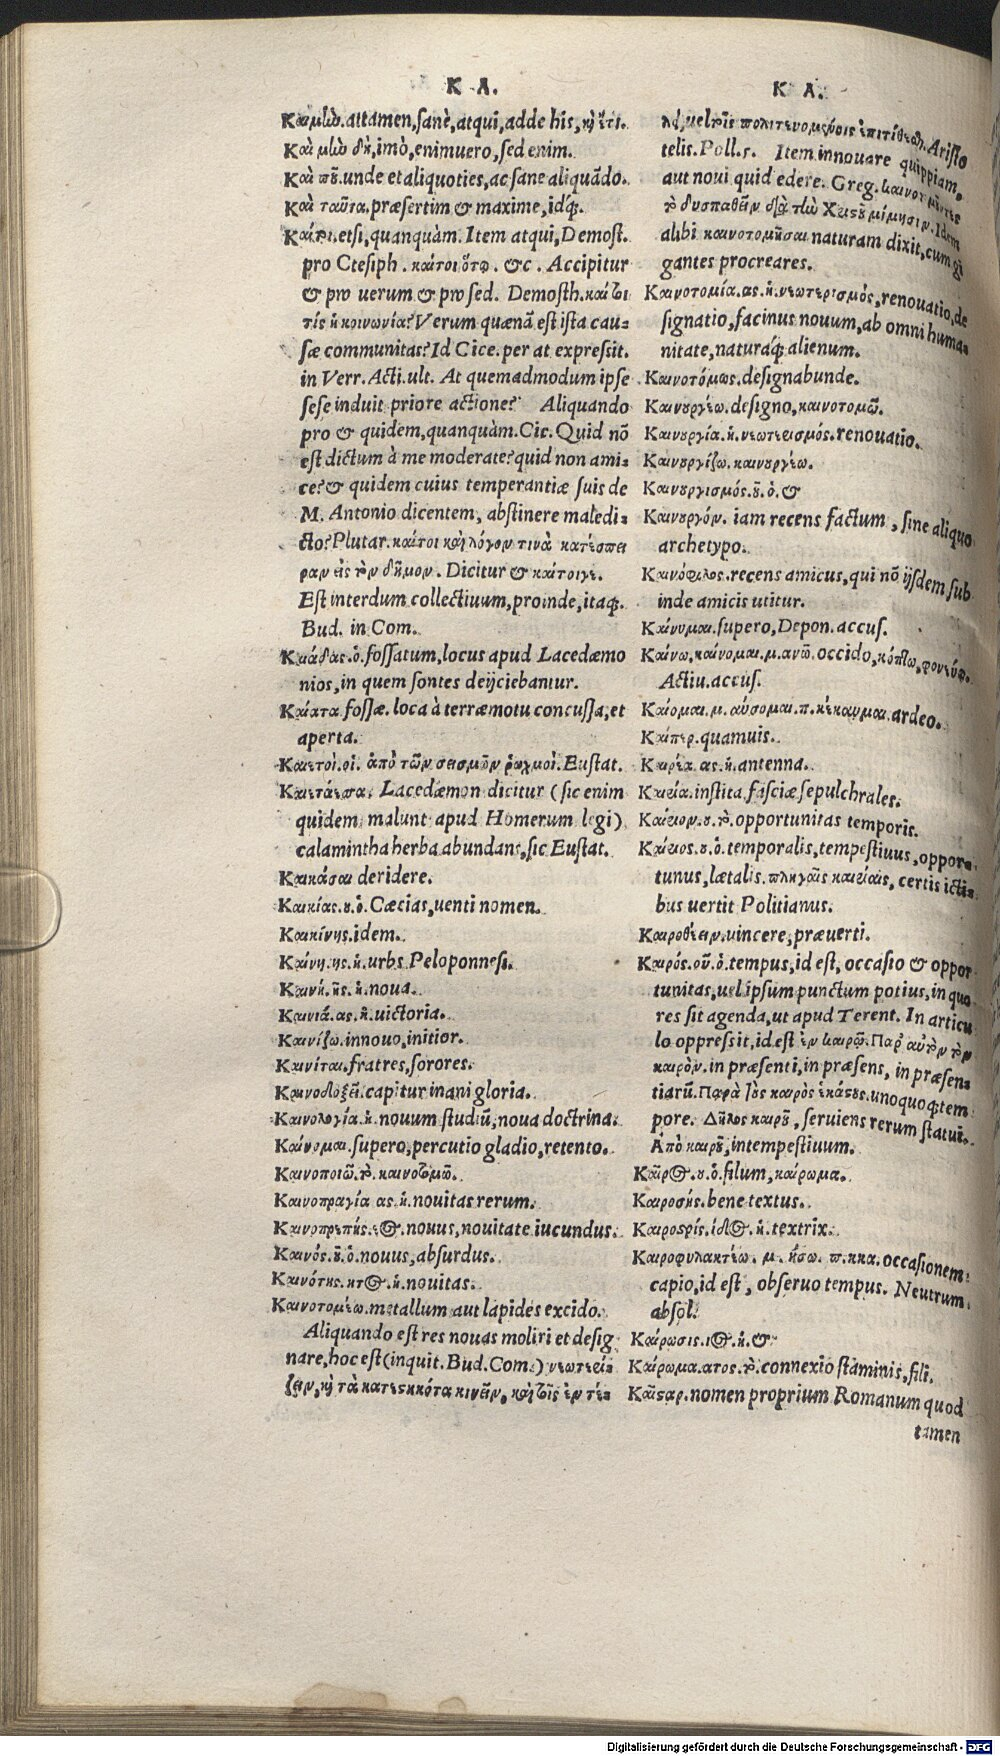 Κ Α.
Καὶ μὲν. attamen, sanè, atqui, adde his, καὶ ἔτι.
Καὶ μὲν δὴ, imò, enimuero, sed enim.
Καὶ ποῦ. unde et aliquoties, ac sane aliquãdo.
Καὶ ταῦτα. præsertim & maxime, idq́;.
Καίτοι. etsi, quanquàm. Item atqui, Demost.
pro Ctesiph. καίτοι ὅτῳ. &c. Accipitur
& pro uerum & pro sed. Demosth. καίτοι
τίς ἡ κοινωνία? Verum quænã est ista cau-
sæ communitas? Id Cice. per at expressit.
in Verr. Acti. ult. At quemadmodum ipse
sese induit priore actione? Aliquando
pro & quidem, quanquàm. Cic. Quid nõ
est dictum à me moderate? quid non ami-
ce? & quidem cuius temperantiæ fuis de
M. Antonio dicentem, abstinere maledi-
cto? Plutar. καίτοι καὶ λόγον τινὰ κατέσπει
ραν εἰς τὸν δῆμον. Dicitur & καίτοιγε.
Est interdum collectiuum, proinde, itaq́;.
Bud. in Com.
Καιάδας. ὁ. fossatum, locus apud Lacedæmo
nios, in quem sontes deijciebantur.
Καίατα fossæ. loca à terræmotu concussa, et
aperta.
Καιετοὶ. οἱ. ἀπὸ τῶν σεισμῶν ῥωχμοὶ. Eustat.
Καιετάεσσα. Lacedæmon dicitur (sic enim
quidem malunt apud Homerum legi)
calamintha herba abundans, sic Eustat.
Καικάσαι deridere.
Καικίας. ου. ὁ. Cæcias, uenti nomen.
Καικίνης. idem.
Καίνη. ης. ἡ. urbs Peloponnesi.
Καινὴ. ῆς. ἡ. noua.
Καινιά. ας. ἡ. uictoria.
Καινίζω. innouo, initior.
Καινίται. fratres, sorores.
Καινοδοξεῖ. capitur inani gloria.
Καινολογία. ἡ. nouum studiũ, noua doctrina.
Καίνομαι. supero, percutio gladio, retento.
Καινοποιῶ. τὸ. καινοτομῶ.
Καινοπραγία ας. ἡ. nouitas rerum.
Καινοπρεπής. έος. nouus, nouitate iucundus.
Καινός. οῦ. ὁ. nouus, absurdus.
Καινότης. ητος. ἡ. nouitas.
Καινοτομέω. metallum aut lapides excido.
Aliquando est res nouas moliri et desig
nare, hoc est (inquit. Bud. Com.) νεωτερί-
ζειν, καὶ τὰ κατεστηκότα κινεῖν, καὶ τοῖς ἐν τέ-
Κ Α.
λει, uel τοῖς πολιτευομένοις ἐπιτίθεσθαι. Aristo
telis. Poll. s. Item innouare quippiam,
aut noui quid edere. Greg. καινοτομεῖτε
τὸ δυσπαθεῖν διὰ τὴν Χριστοῦ μίμησιν. Idem
alibi καινοτομῆσαι naturam dixit, cum gi
gantes procreares.
Καινοτομία. ας. ἡ. νεωτερισμός, renouatio, de
signatio, facinus nouum, ab omni huma-
nitate, naturáq; alienum.
Καινοτόμως. designabunde.
Καινουργέω. designo, καινοτομῶ.
Καινουργία. ἡ. νεωτερισμός. renouatio.
Καινουργίζω. καινουργέω.
Καινουργισμός. οῦ. ὁ. &
Καινουργόν. iam recens factum, sine aliquo
archetypo.
Καινόφιλος. recens amicus, qui nõ ijsdem sub
inde amicis utitur.
Καίνυμαι. supero, Depon. accus.
Καίνω, καίνομαι. μ. ανῶ. occido, κόπτω, φονεύω.
Actiu. accus.
Καίομαι. μ. αύσομαι. π. κέκαυμαι. ardeo.
Καίπερ. quamuis.
Καιρέα. ας. ἡ. antenna.
Καιρία. instita fasciæ sepulchrales.
Καίριον. ου. τὸ. opportunitas temporis.
Καίριος. ου. ὁ. temporalis, tempestiuus, oppor-
tunus, lætalis. πληγαῖς καιρίαις, certis icti-
bus uertit Politianus.
Καιροθέειν. uincere, præuerti.
Καιρός. οῦ. ὁ. tempus, id est, occasio & oppor
tunitas, uel ipsum punctum potius, in quo
res sit agenda, ut apud Terent. In articu
lo oppressit, id est ἐν καιρῷ. Παρ' αὐτὸν τὸν
καιρόν. in præsenti, in præsens, in præsen-
tiarũ. Παρὰ τοὺς καιροὺς ἑκάστους. unoquoq́; tem
pore. Δῆλος καιροῦ, seruiens rerum statui.
Ἀπὸ καιροῦ, intempestiuum.
Καῖρος. ου. ὁ. filum, καίρωμα.
Καιροσής. bene textus.
Καιροσρίς. ίδος. ἡ. textrix.
Καιροφυλακτέω. μ. ήσω. π. ηκα. occasionem
capio, id est, obseruo tempus. Neutrum.
absol.
Καίρωσις. ιος. ἡ. &
Καίρωμα. ατος. τὸ. connexio staminis, fili.
Καῖσαρ. nomen proprium Romanum quod
tamen
Digitalisierung gefördert durch die Deutsche Forschungsgemeinschaft - DFG